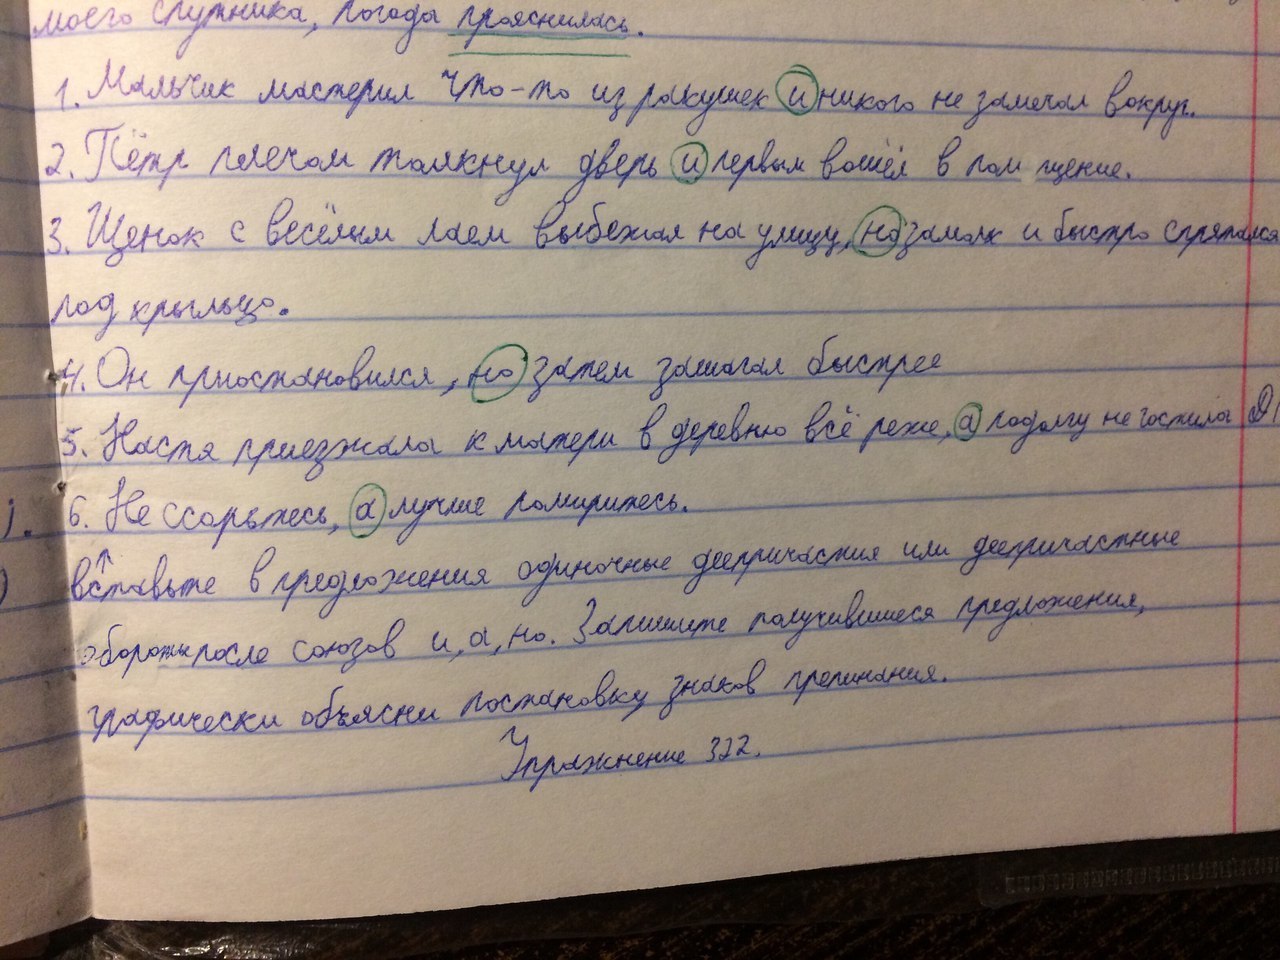 моего спутника, погода прояснилась.
1. Мальчик мастерил что-то из ракушек и никого не замечал вокруг.
2. Пётр плечом толкнул дверь и первым вошёл в пом щение.
3. Щенок с весёлым лаем выбежал на улицу, но замолк и быстро спрятался
под крыльцо.
4. Он приостановился, но затем зашагал быстрее
5. Настя приезжала к матери в деревню всё реже, а подолгу не гостила
6. Не ссорьтесь, а лучше помиритесь.
вставьте в предложения одиночные деепричастия или деепричастные
обороты после союзов и, а, но. Запишите получившиеся предложения,
графически объясни постановку знаков препинания.
Упражнение 322.